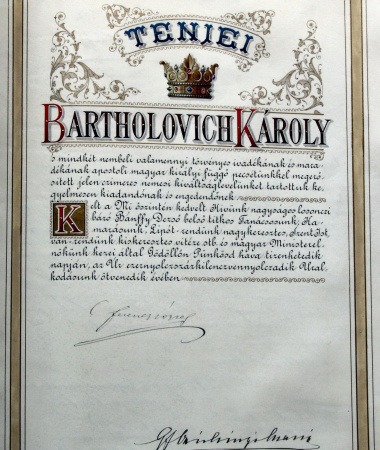 TENJEI
BARTHOLOVICH KÁROLY
s mindkét nembeli valamennyi törvényes ivadékának és mara-
dékának apostoli magyar királyi függő pecsétünkkel megerő-
sített jelen czimeres nemesi kiváltságlevelünket tartottuk ke-
gyelmesen kiadandónak és engedendőnek.
Kelt a Mi őszintén kedvelt Hivünk nagyságos losonczi
báró Bánffy Dezső belső titkos Tanácsosunk, Ka-
marásunk, Lipót-rendünk nagykeresztes, Szent Ist-
ván-rendünk kiskeresztes vitéze stb és magyar Ministerel-
nökünk kezei által Gödöllőn Pünkösd hava tizenhetedik
napján, az Úr ezernyolczszázkilenczvennyolczadik Ural-
kodásunk ötvenedik évében.
Ferencz József